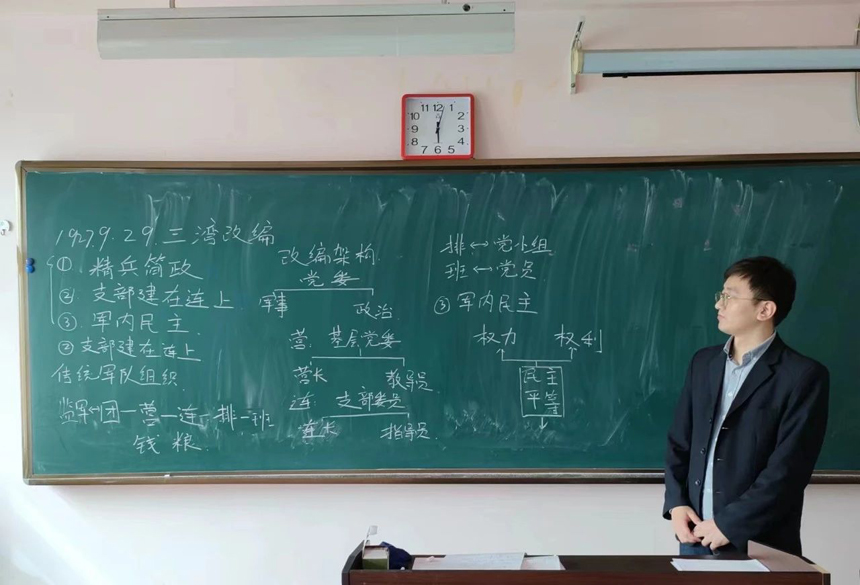 11 12 1
10 2
9 3
8 4
7 6 5
1927.9.29.三湾改编
① 精兵简政
② 支部建在连上
③ 军内民主
② 支部建在连上
传统军队组织
监军↔团—营—连—排—班
钱粮
改编架构
党委
军事 政治
营: 基层党委
营长 教导员
连: 支部委员
连长 指导员
排↔党小组
班↔党员
③ 军内民主
权力 权利
民主
平等